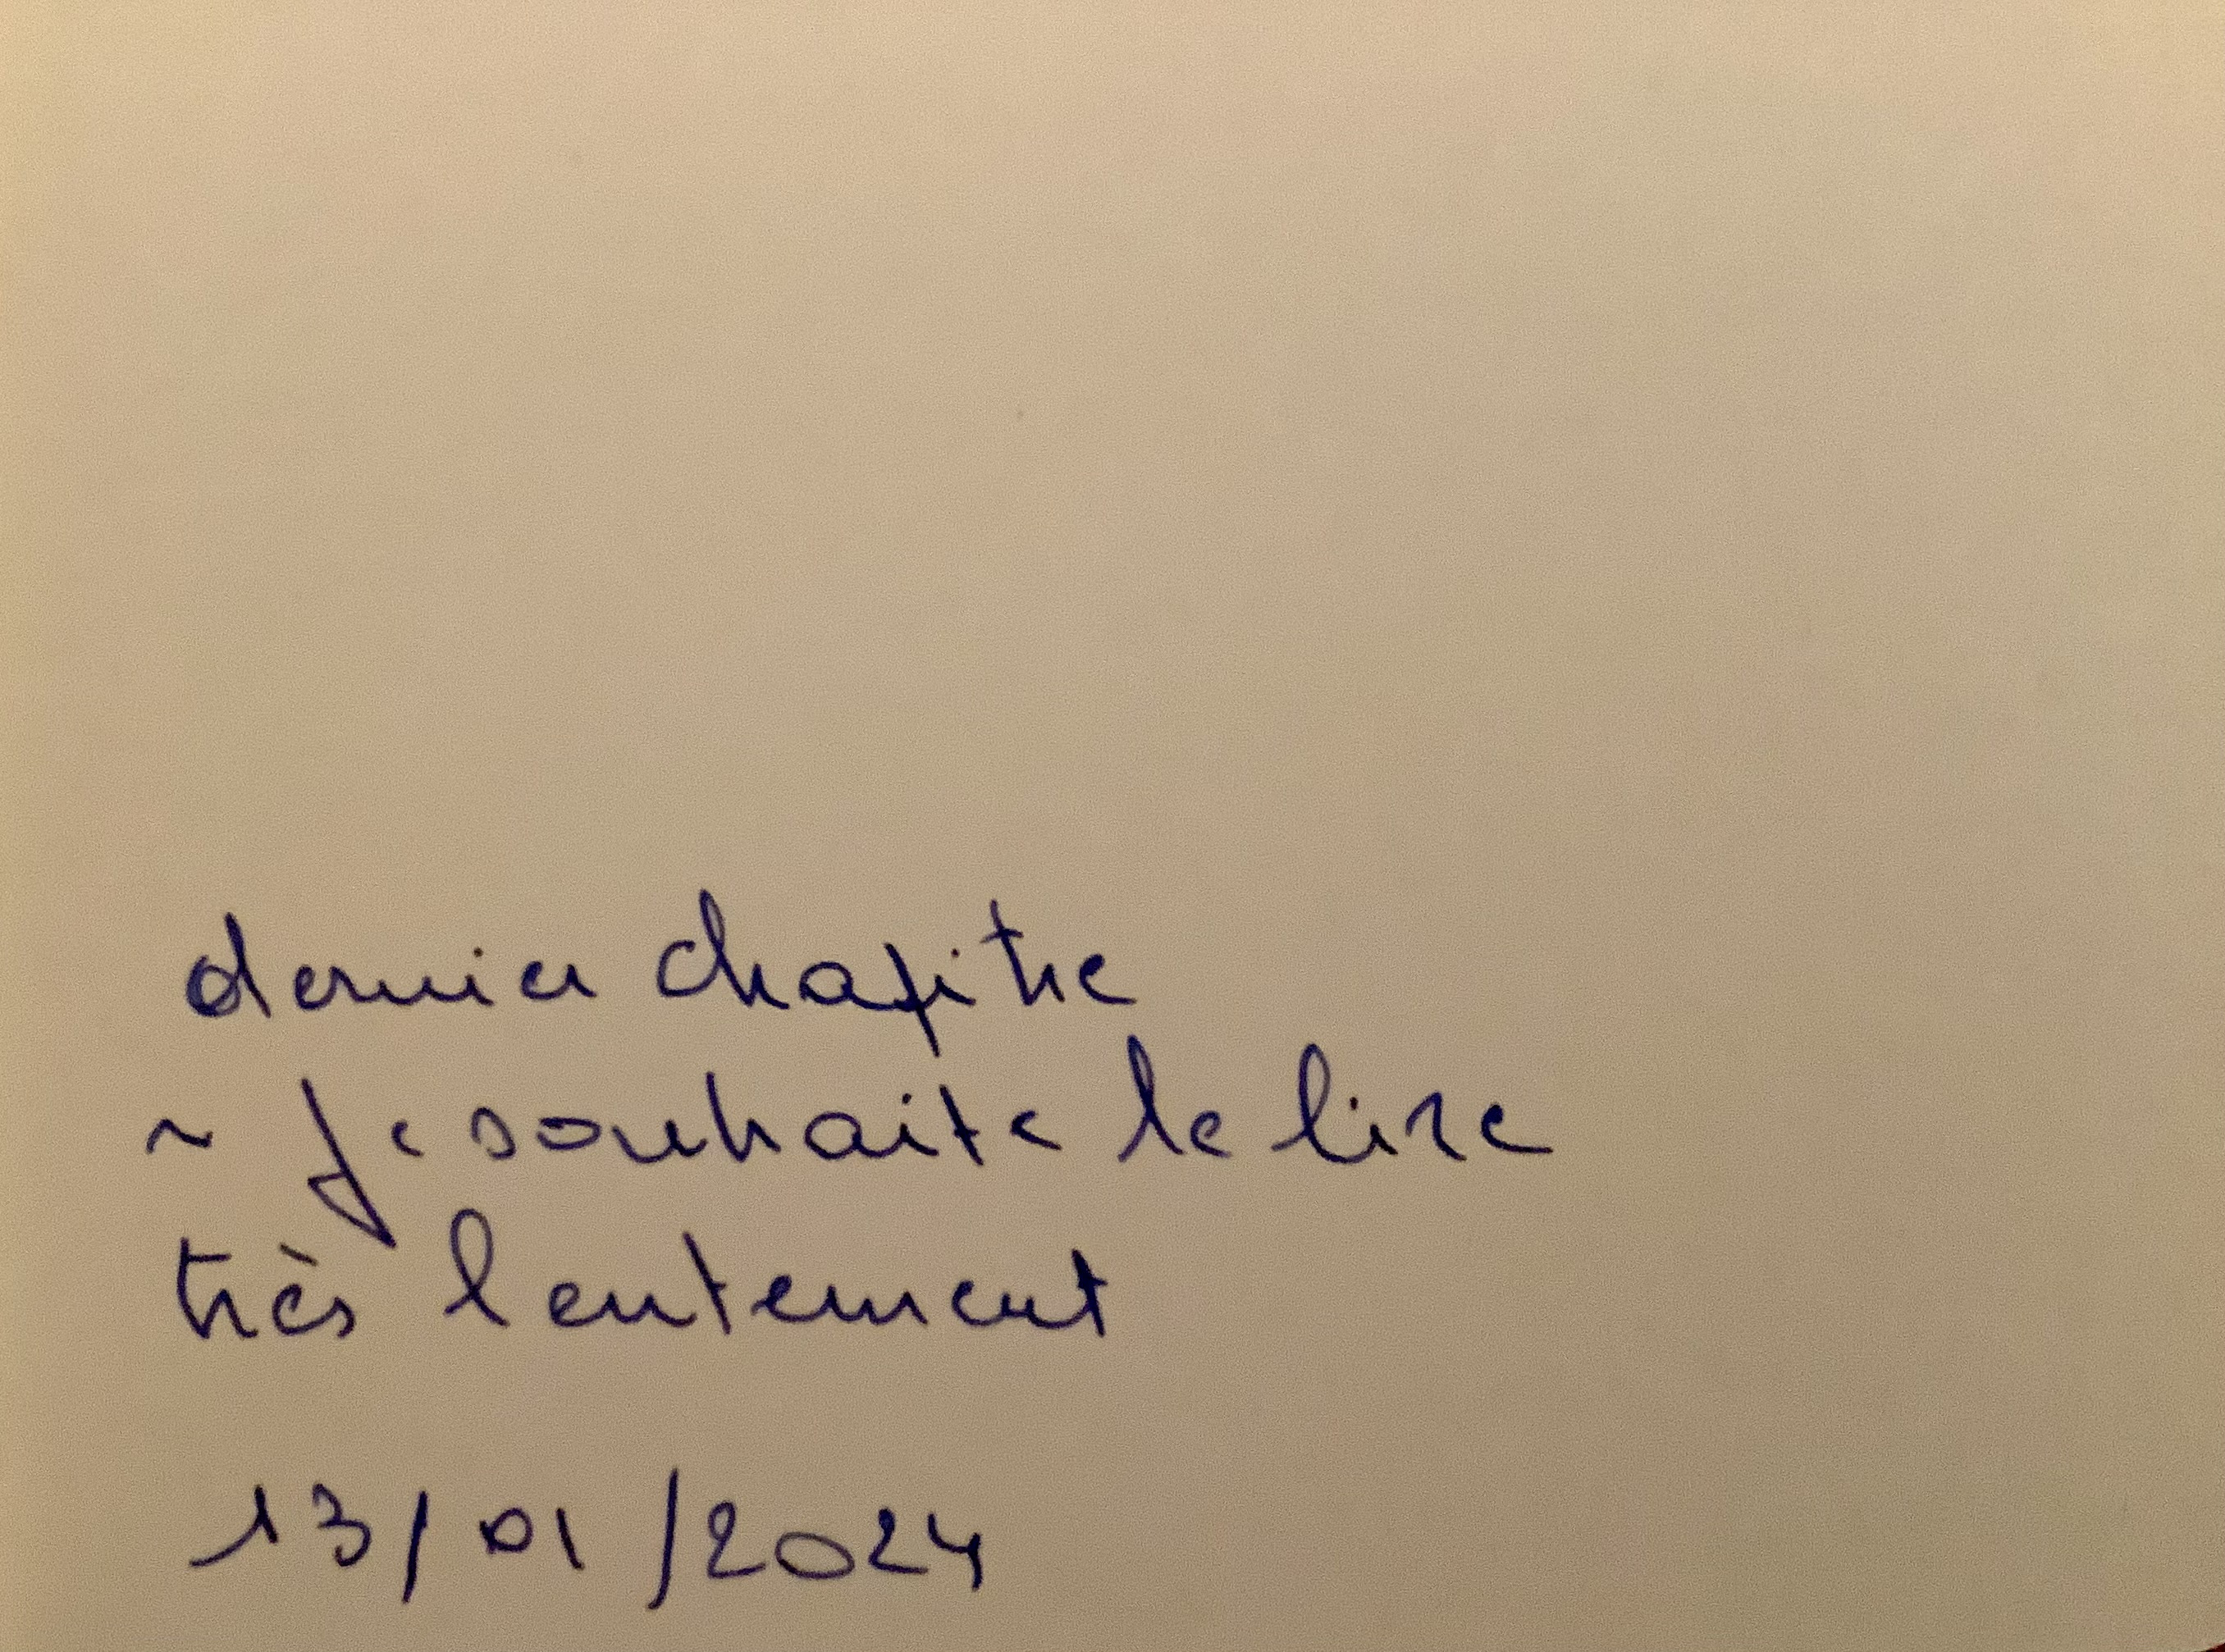 dernier chapitre
~ Je souhaite le lire
très lentement
13/01/2024